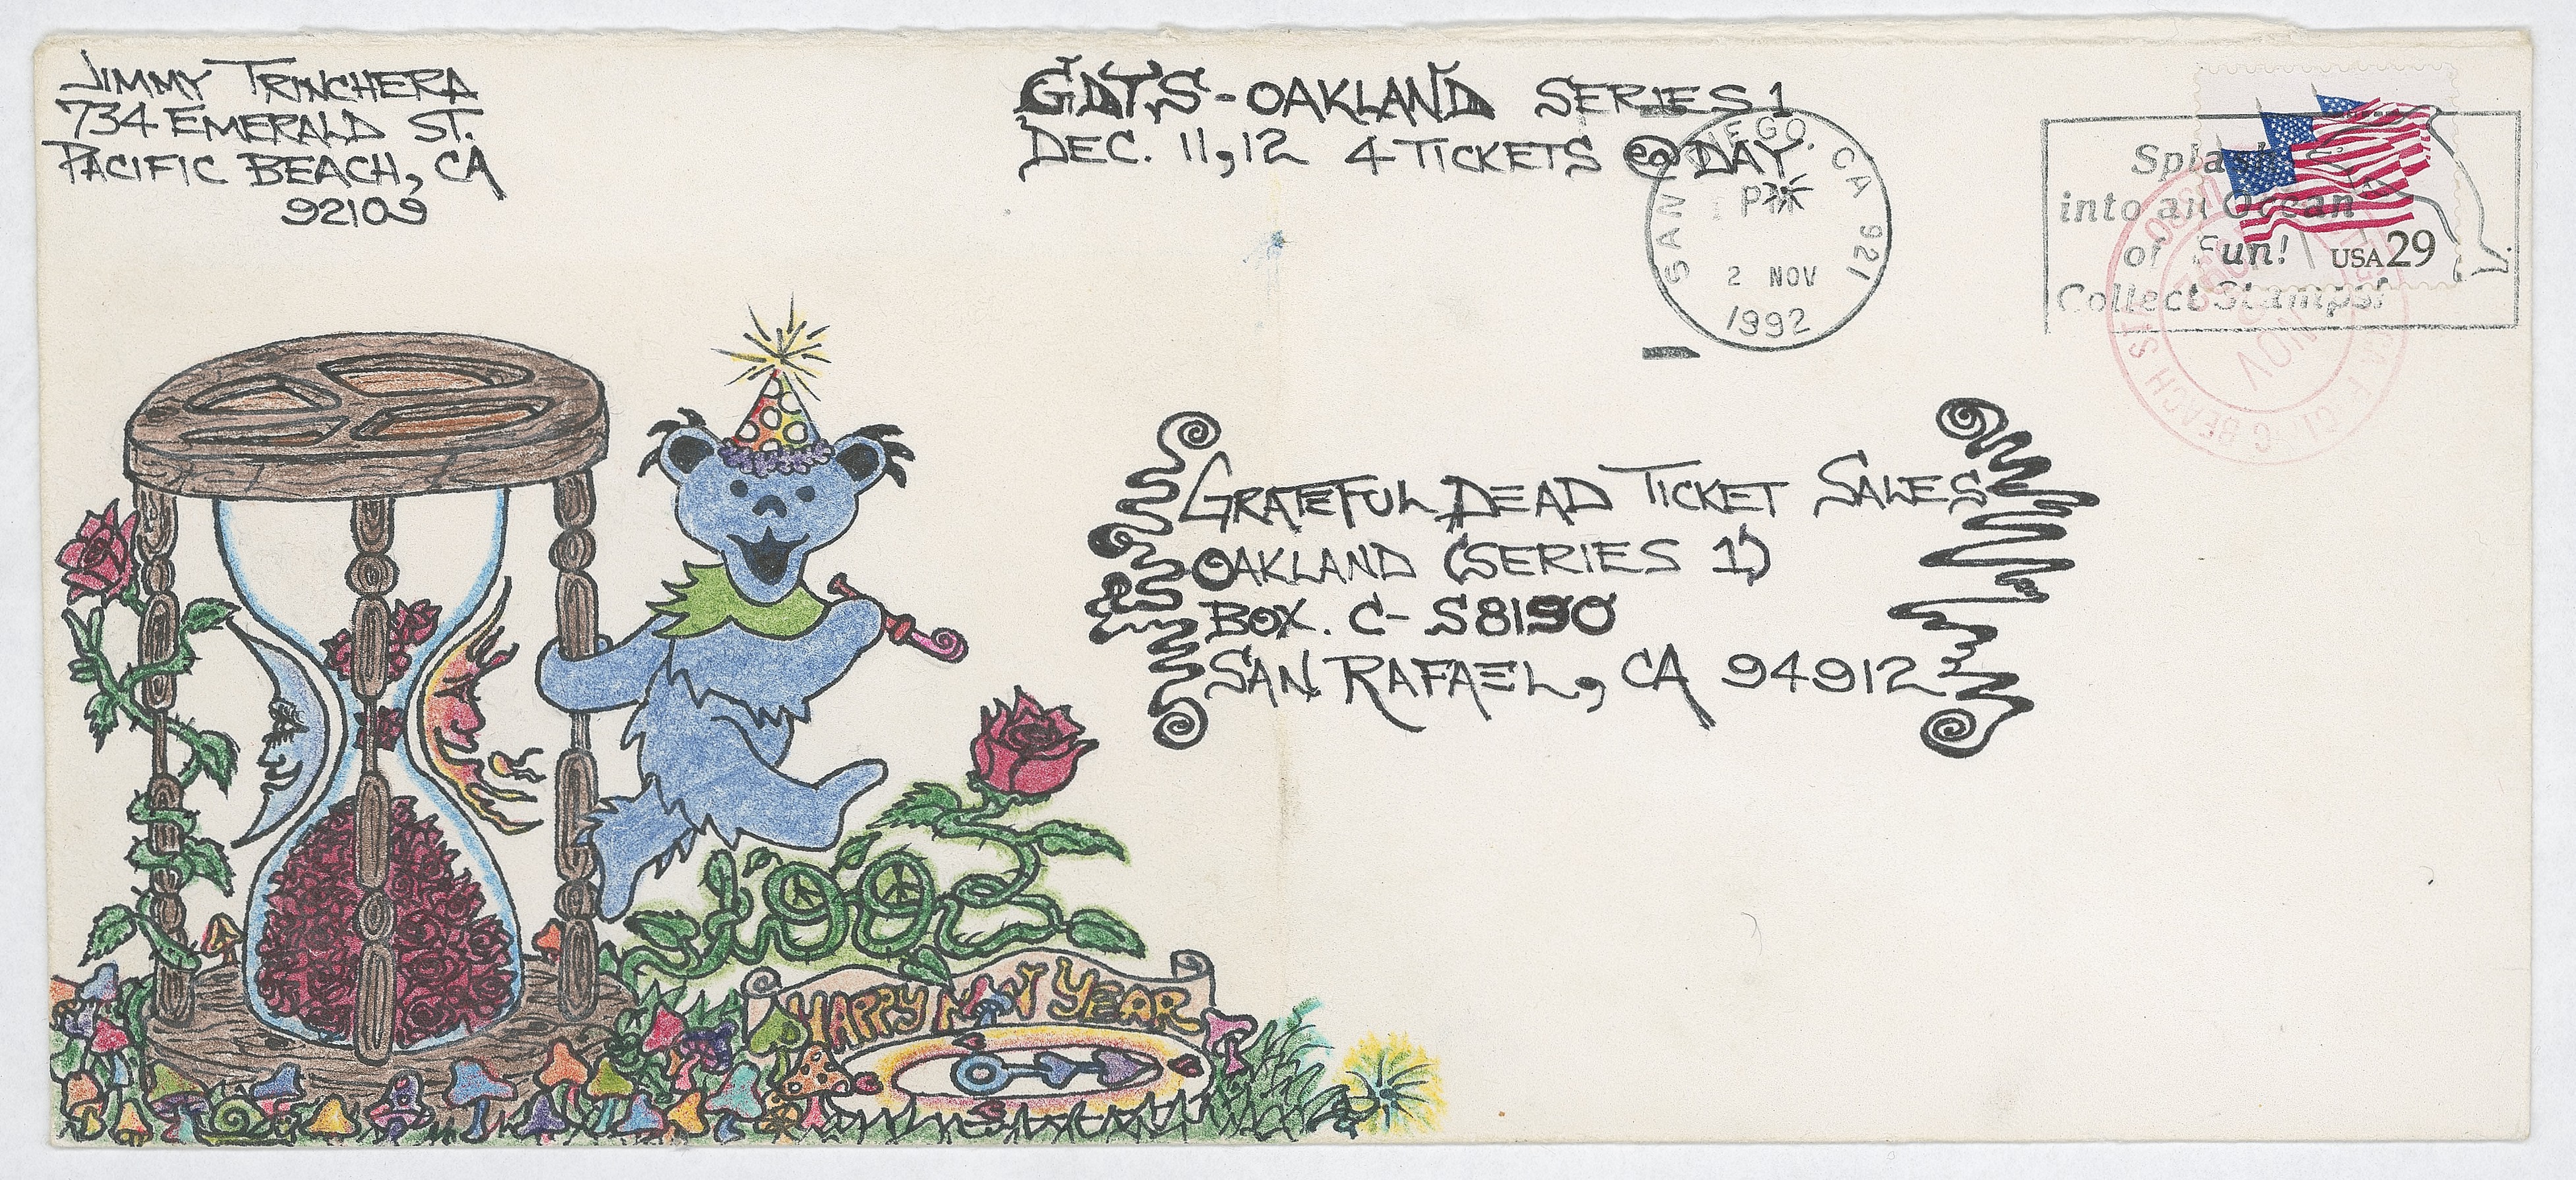 JIMMY TRINCHERA
734 EMERALD ST.
PACIFIC BEACH, CA
92109
GDTS-OAKLAND SERIES 1
DEC. 11,12 4-TICKETS @ DAY
SAN DIEGO, CA 921
PM
2 NOV
1992
Splash
into an Ocean
of Fun!
Collect Stamps!
USA 29
BEACH STA
NOV
GRATEFUL DEAD TICKET SALES
OAKLAND (SERIES 1)
BOX. C- S8190
SAN RAFAEL, CA 94912
1992
HAPPY NEW YEAR